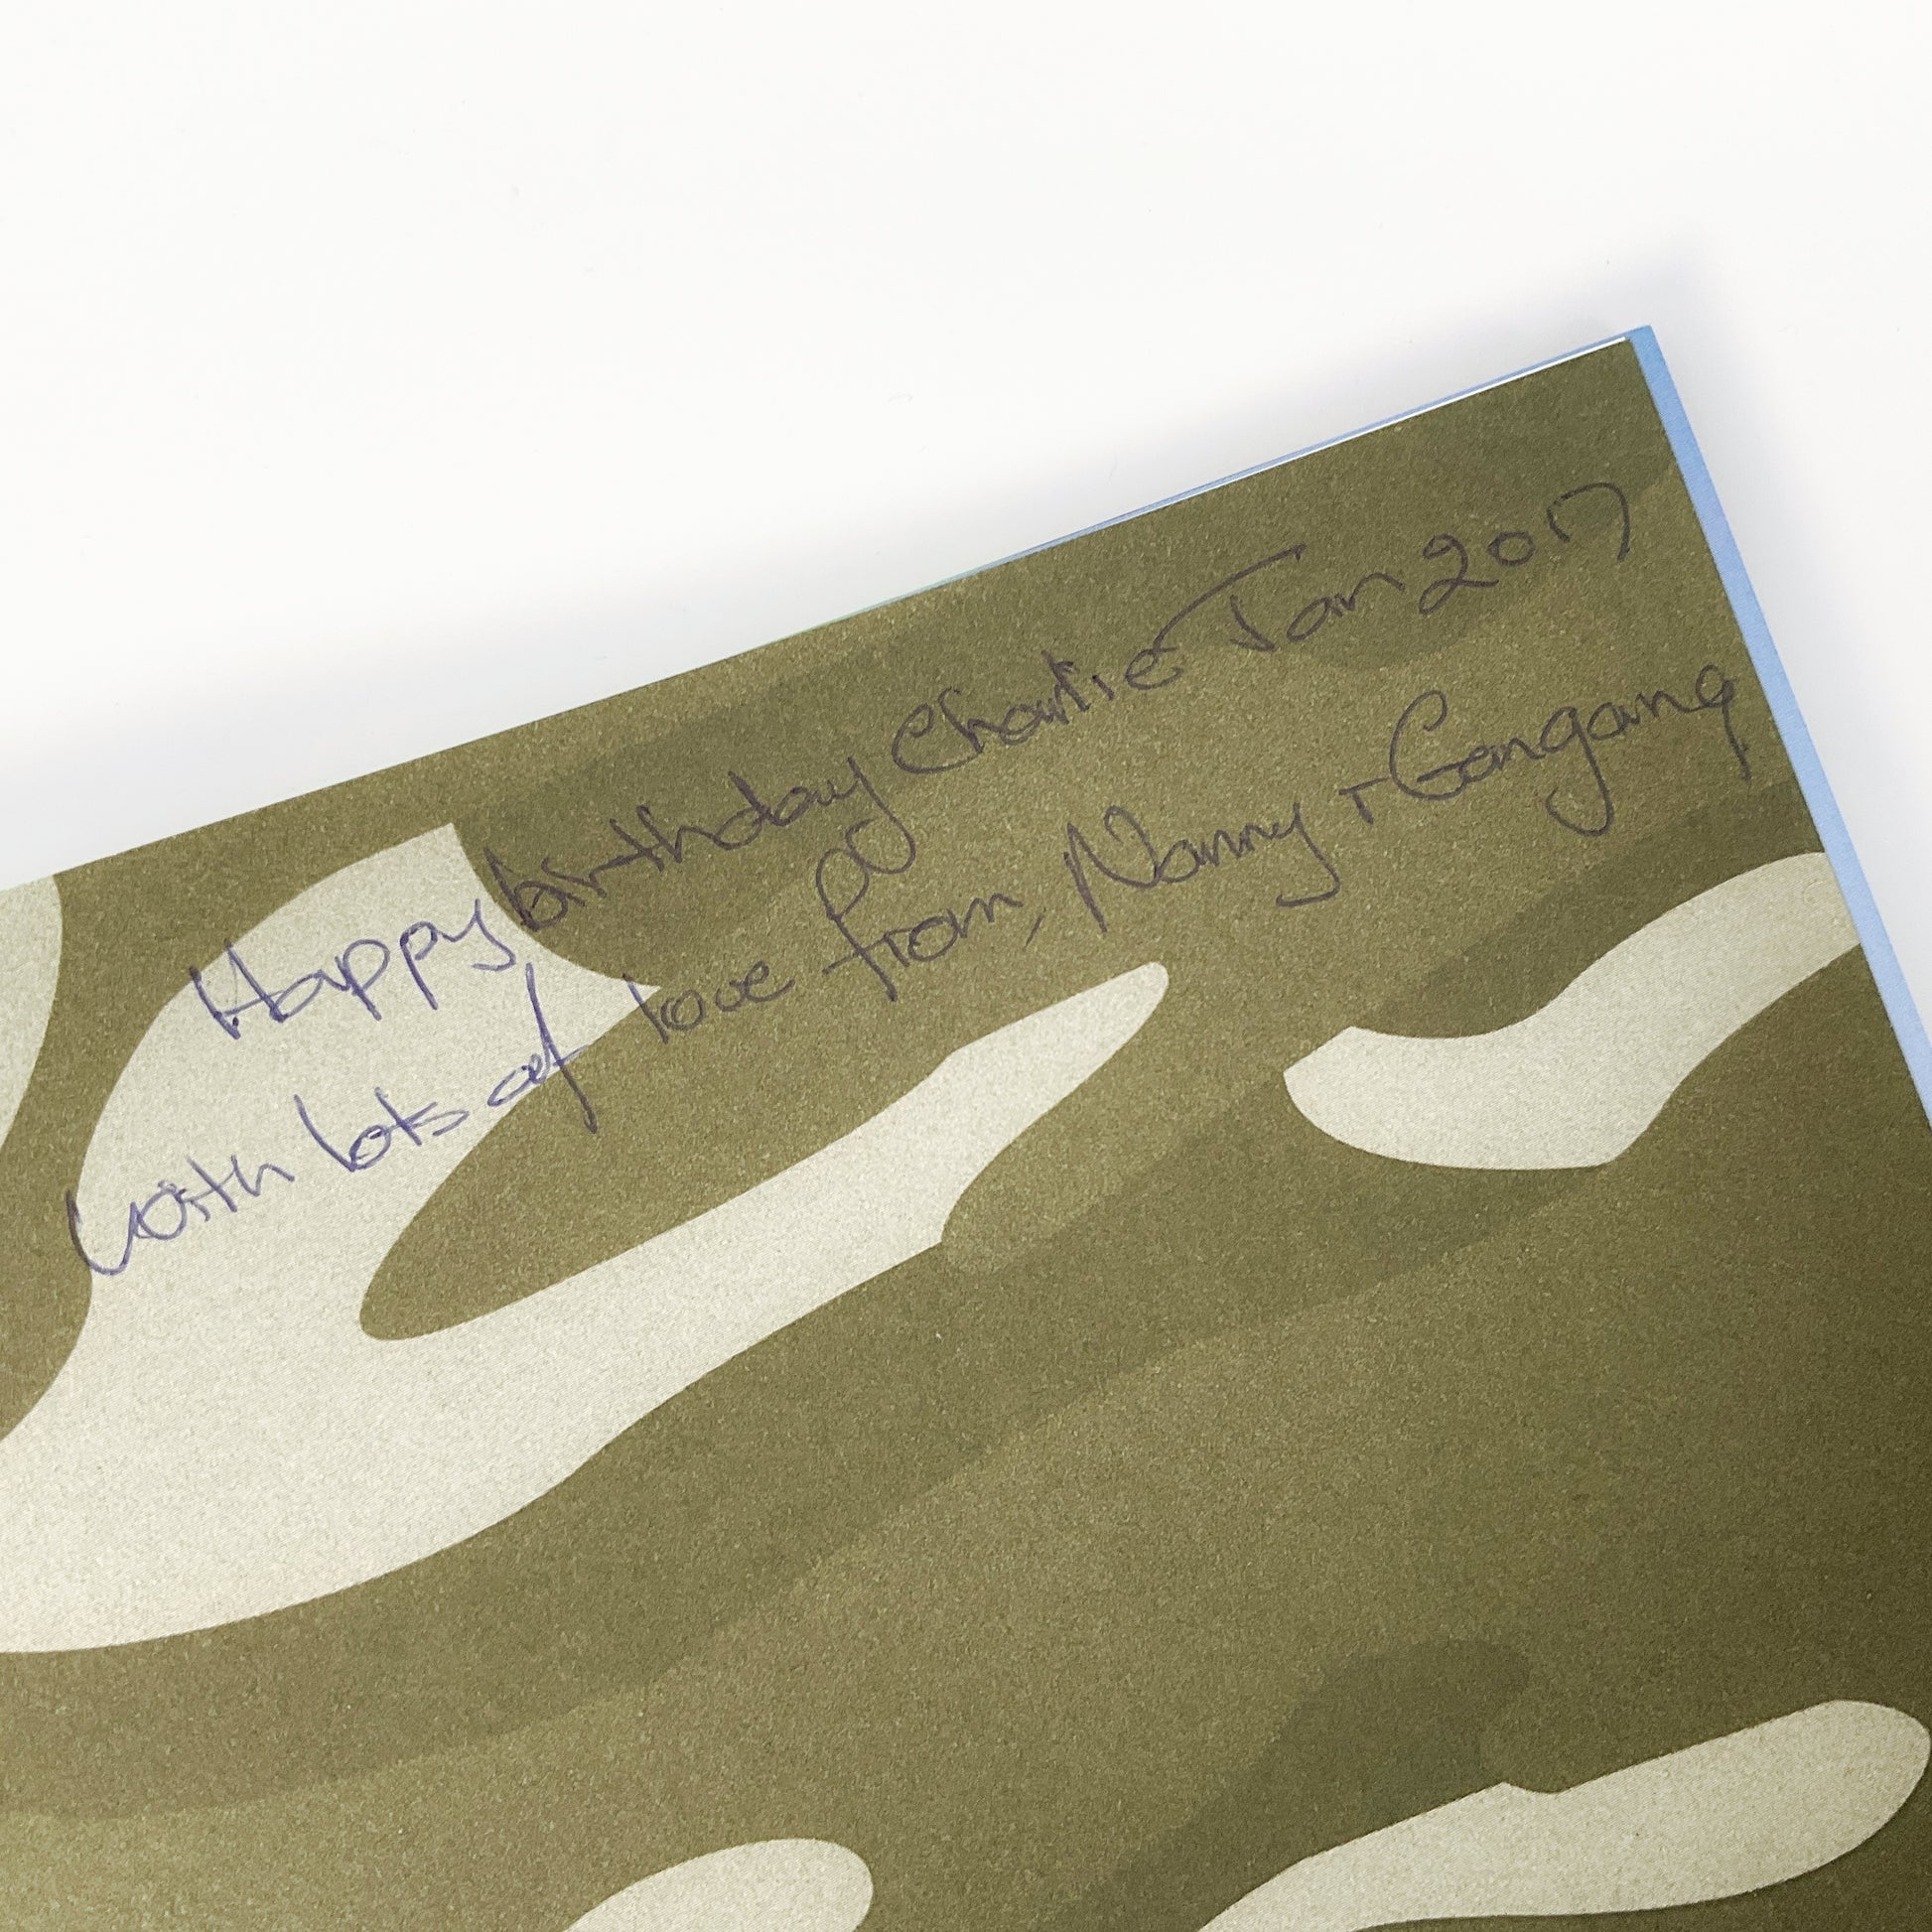 Happy birthday Charlie Jan 2017
with lots of love from, Nanny + Gangang